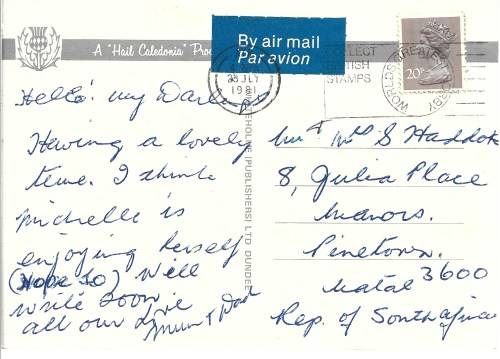 A "Hail Caledonia" Pro
By air mail
Par avion
COLLECT
BRITISH
STAMPS
JLY
1981
20p
Hello! my Darlings
Having a lovely
time. I think
Michelle is
enjoying herself
(Hope So) Will
write soon
all our Love
Mum & Dad
WHITEHOLME (PUBLISHERS) LTD. DUNDEE
Mr & Mrs S Haddock
8, Julia Place
Manors.
Pinetown.
3600
Natal
Rep. of South Africa